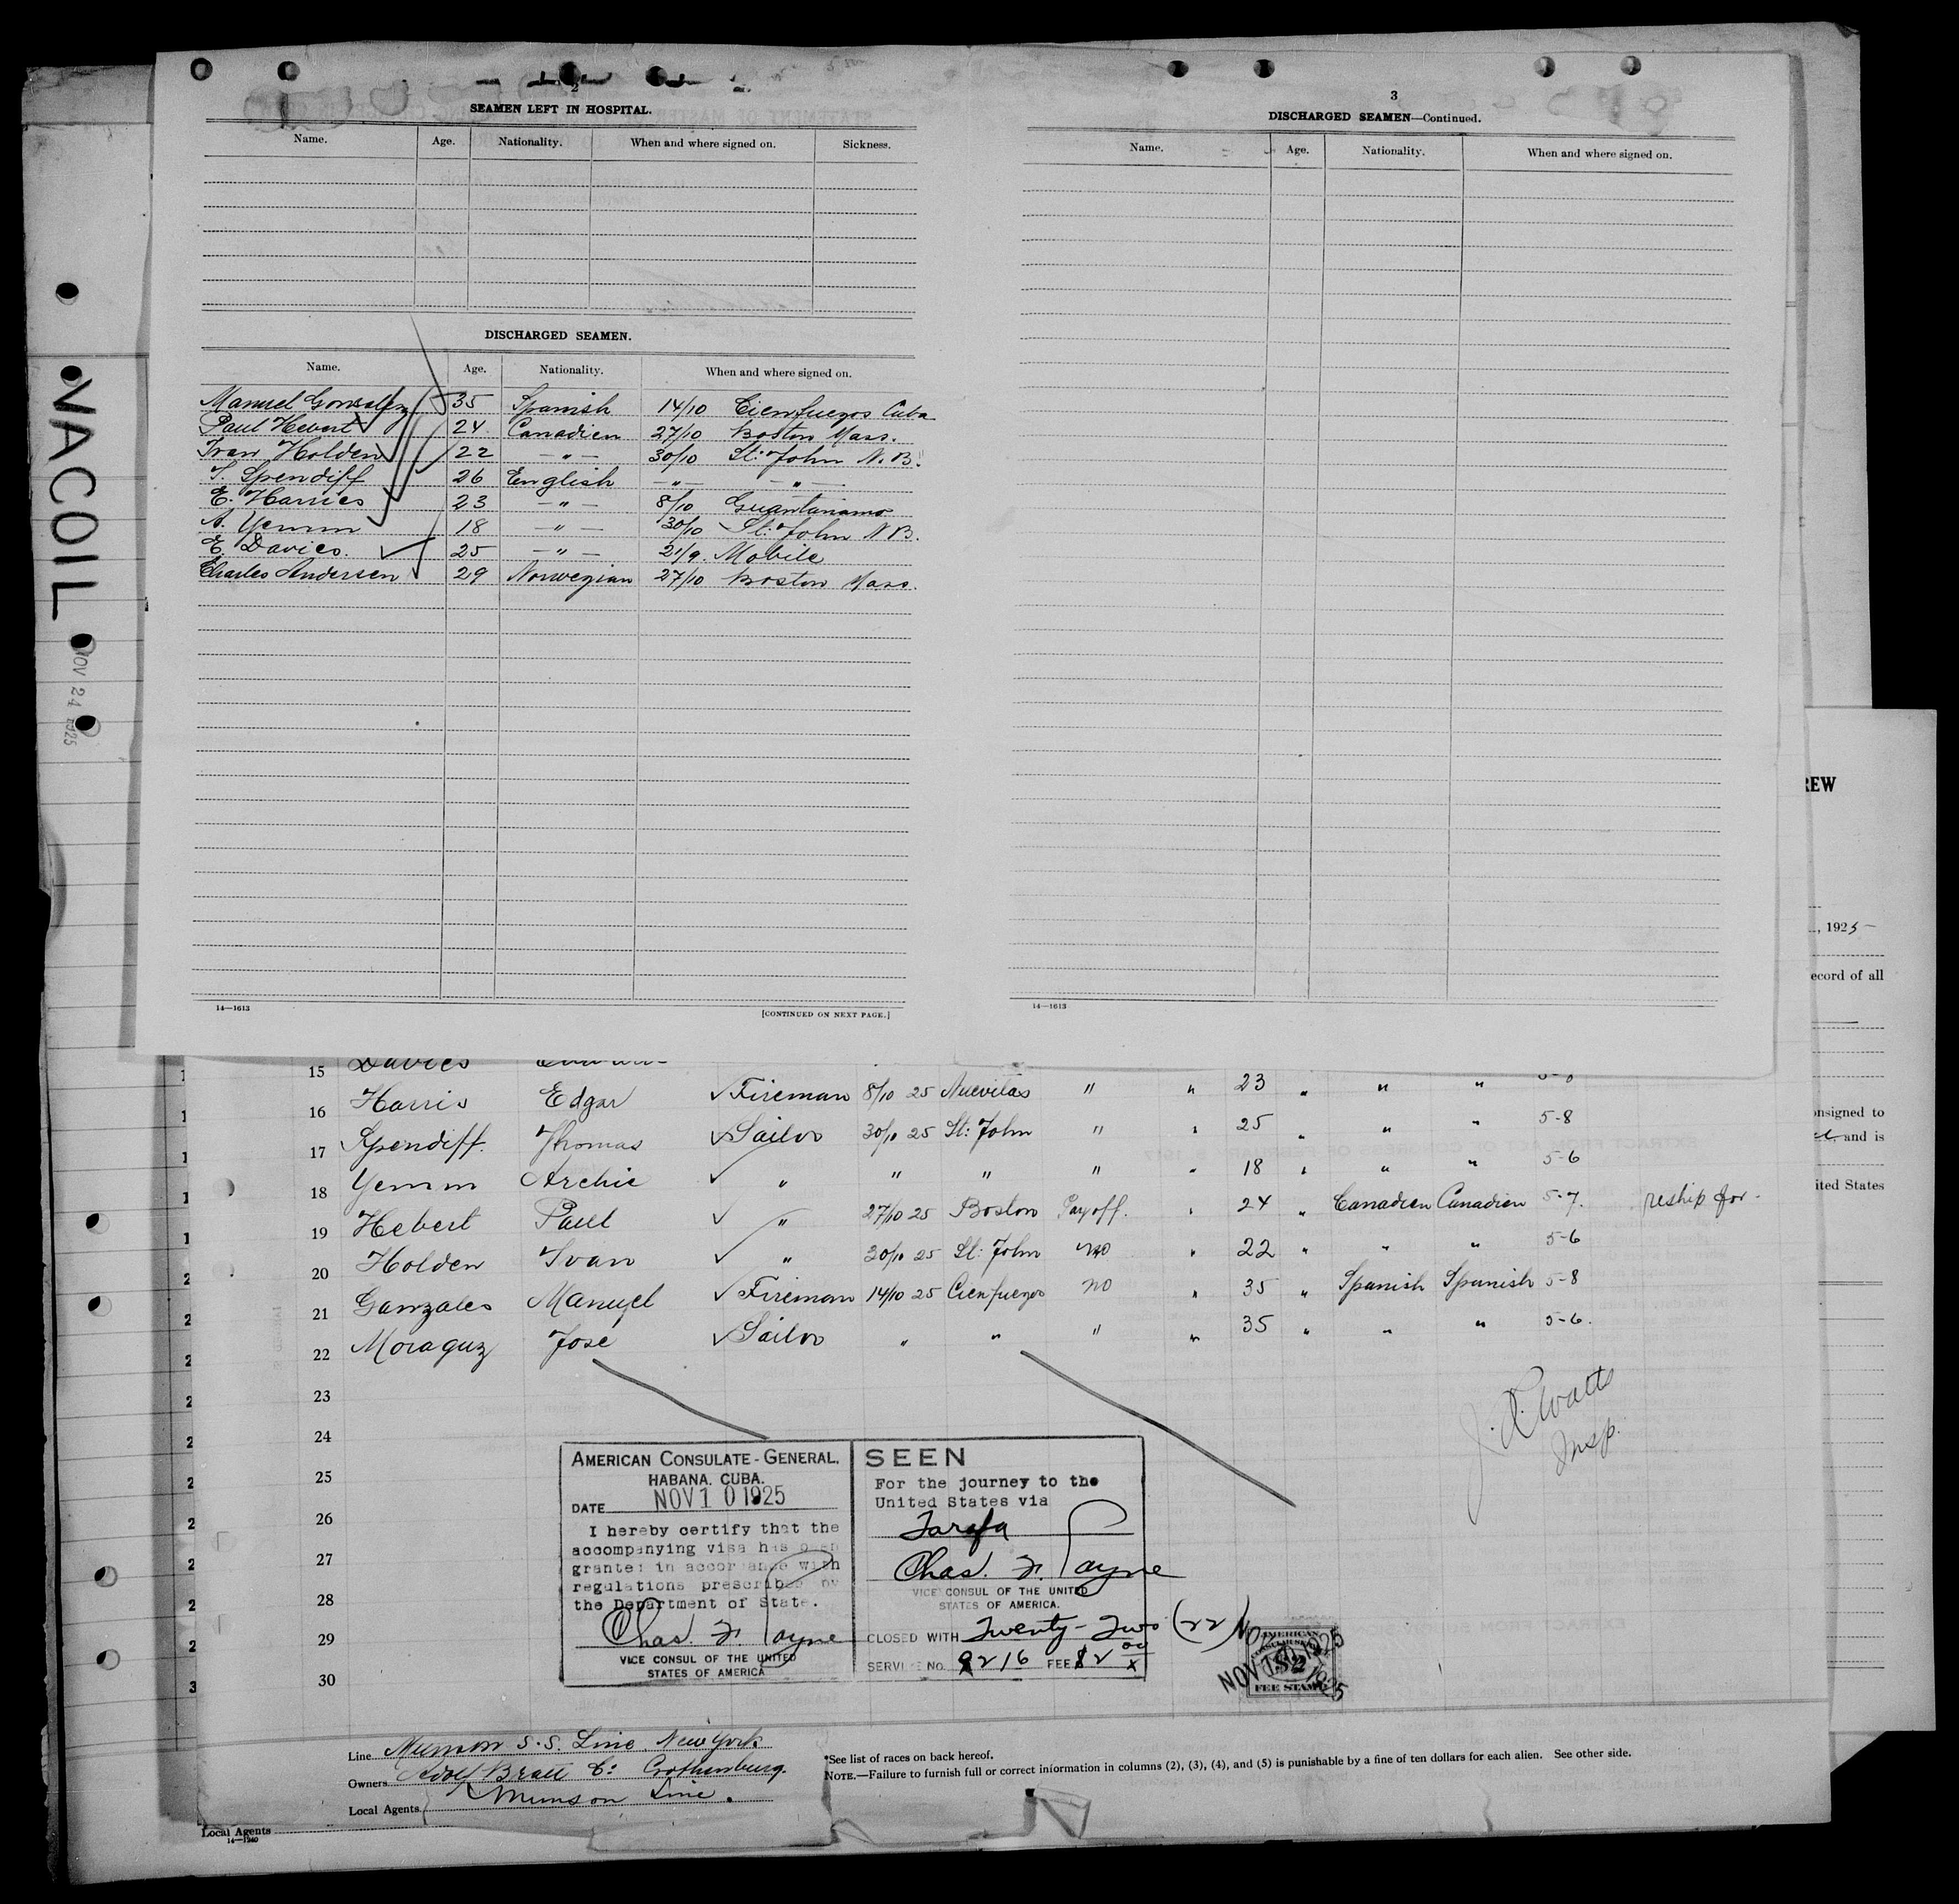 2
SEAMEN LEFT IN HOSPITAL.
Name. Age. Nationality. When and where signed on. Sickness.
DISCHARGED SEAMEN.
Name. Age. Nationality. When and where signed on.
Manuel Gonsalez 35 Spanish 14/10 Cienfuegos Cuba
Paul Hebert 24 Canadien 27/10 Boston Mass.
Ivan Holden 22 — " — 30/10 St: John N.B.
T. Spendiff 26 English — " — — " —
E. Harries 23 — " — 8/10 Guantanamo
A. Yemm 18 — " — 30/10 St: John N.B.
E. Davies. 25 — " — 21/9. Mobile
Charles Andersen 29 Norwegian 27/10 Boston Mass.
14—1613
[CONTINUED ON NEXT PAGE.]
3
DISCHARGED SEAMEN—Continued.
Name. Age. Nationality. When and where signed on.
14—1613
NACOIL
NOV 24 1925
REW
, 1925
ecord of all
onsigned to
and is
ited States
15 Davies
16 Harris Edgar Fireman 8/10 25 Nuevitas " " 23 " " "
17 Spendiff. Thomas Sailor 30/10 25 St: John " " 25 " " " 5-8
18 Yemm Archie " " " " " 18 " " " 5-6
19 Hebert Paul " 27/10 25 Boston Pay off. " 24 " Canadien Canadien 5-7. reship for
20 Holden Ivan " 30/10 25 St: John no " 22 " " " 5-6
21 Ganzales Manuel Fireman 14/10 25 Cienfuegos no " 35 " Spanish Spanish 5-8
22 Moraguz Jose Sailor " " " " 35 " " " 5-6.
23
24
25
26
27
28
29
30
J. R. Watts
Insp.
AMERICAN CONSULATE-GENERAL,
HABANA, CUBA.
DATE NOV 10 1925
I hereby certify that the
accompanying visa has been
granted in accordance with
regulations prescribed by
the Department of State.
Chas. F. Payne
VICE CONSUL OF THE UNITED
STATES OF AMERICA
SEEN
For the journey to the
United States via
Tarafa
Chas. F. Payne
VICE CONSUL OF THE UNITED
STATES OF AMERICA.
CLOSED WITH Twenty-Two (22)
SERVICE No. 9216 FEE $2 00
AMERICAN
$2
FEE STAMP
NOV 10 1925
Line Munson S.S. Line New York
Owners Adolf Bratt Co: Gothenburg.
Local Agents Munson Line.
Local Agents
14—1940
*See list of races on back hereof.
NOTE.—Failure to furnish full or correct information in columns (2), (3), (4), and (5) is punishable by a fine of ten dollars for each alien. See other side.